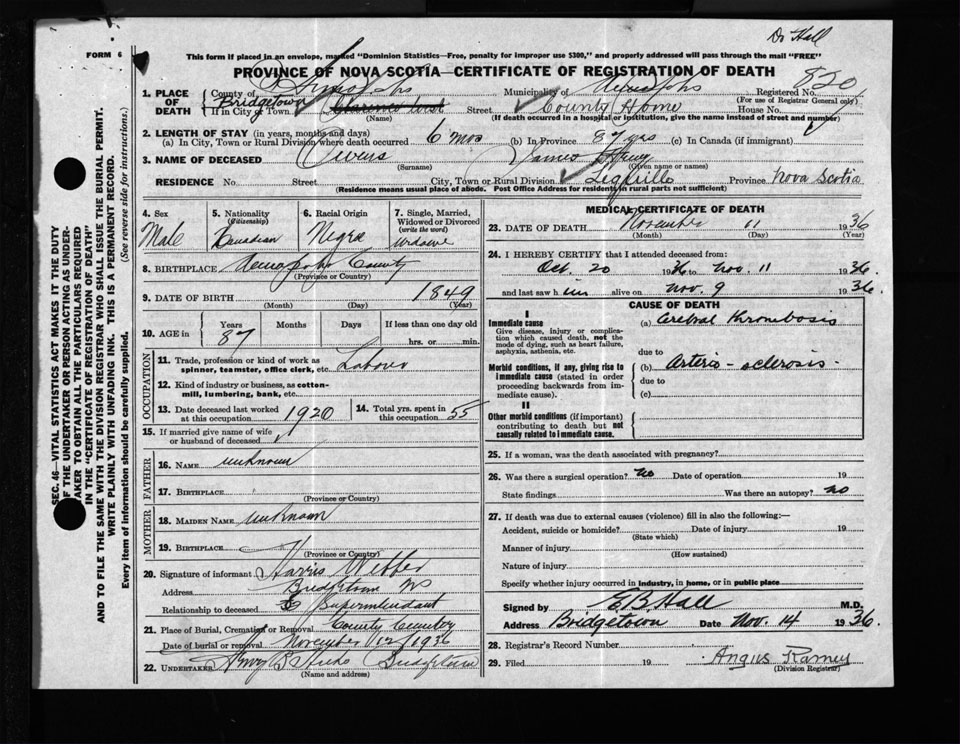 Dr Hall
FORM 6
This form if placed in an envelope, marked "Dominion Statistics—Free, penalty for improper use $300," and properly addressed will pass through the mail "FREE"
PROVINCE OF NOVA SCOTIA—CERTIFICATE OF REGISTRATION OF DEATH
820
1. PLACE OF DEATH
County of Municipality of Registered No.
(For use of Registrar General only)
Bridgetown
If in City or Town Street County Home House No.
(Name) (If death occurred in a hospital or institution, give the name instead of street and number)
2. LENGTH OF STAY (in years, months and days)
(a) In City, Town or Rural Division where death occurred 6 mos (b) In Province 87 yrs (c) In Canada (if immigrant)
3. NAME OF DECEASED Owens James Henry
(Surname) (Given name or names)
RESIDENCE No. Street City, Town or Rural Division Province Nova Scotia
(Residence means usual place of abode. Post Office Address for residents in rural parts not sufficient)
4. Sex
Male
5. Nationality (Citizenship)
Canadian
6. Racial Origin
Negro
7. Single, Married, Widowed or Divorced (write the word)
8. BIRTHPLACE County
(Province or Country)
9. DATE OF BIRTH 1849
(Month) (Day) (Year)
10. AGE in Years Months Days If less than one day old
87 hrs. or min.
OCCUPATION
11. Trade, profession or kind of work as spinner, teamster, office clerk, etc. Laborer
12. Kind of industry or business, as cotton-mill, lumbering, bank, etc.
13. Date deceased last worked at this occupation 1920
14. Total yrs. spent in this occupation 55
15. If married give name of wife or husband of deceased
FATHER
16. NAME unknown
17. BIRTHPLACE
(Province or Country)
MOTHER
18. MAIDEN NAME unknown
19. BIRTHPLACE
(Province or Country)
20. Signature of informant Harris
Address Bridgetown NS
Relationship to deceased Superintendant
21. Place of Burial, Cremation or Removal County Cemetery
Date of burial or removal November 12 1936
22. UNDERTAKER Bridgetown
(Name and address)
MEDICAL CERTIFICATE OF DEATH
23. DATE OF DEATH November 11 1936
(Month) (Day) (Year)
24. I HEREBY CERTIFY that I attended deceased from:
Oct. 20 1936 to Nov. 11 1936.
and last saw h im alive on Nov. 9 1936.
CAUSE OF DEATH
I
Immediate cause
Give disease, injury or complication which caused death, not the mode of dying, such as heart failure, asphyxia, asthenia, etc.
(a) Cerebral thrombosis
due to
Morbid conditions, if any, giving rise to immediate cause (stated in order proceeding backwards from immediate cause).
(b) Arterio-sclerosis
due to
(c)
II
Other morbid conditions (if important) contributing to death but not causally related to immediate cause.
25. If a woman, was the death associated with pregnancy?
26. Was there a surgical operation? no Date of operation 19
State findings Was there an autopsy? no
27. If death was due to external causes (violence) fill in also the following:—
Accident, suicide or homicide? Date of injury 19
(State which)
Manner of injury
(How sustained)
Nature of injury
Specify whether injury occurred in industry, in home, or in public place
Signed by E B Hall M.D.
Address Bridgetown Date Nov. 14 1936
28. Registrar's Record Number
29. Filed 19 Angus Ramey
(Division Registrar)
SEC. 46—VITAL STATISTICS ACT MAKES IT THE DUTY
OF THE UNDERTAKER OR PERSON ACTING AS UNDER-
TAKER TO OBTAIN ALL THE PARTICULARS REQUIRED
IN THE "CERTIFICATE OF REGISTRATION OF DEATH"
AND TO FILE THE SAME WITH THE DIVISION REGISTRAR WHO SHALL ISSUE THE BURIAL PERMIT.
WRITE PLAINLY WITH UNFADING INK. THIS IS A PERMANENT RECORD.
Every item of information should be carefully supplied. (See reverse side for instructions.)